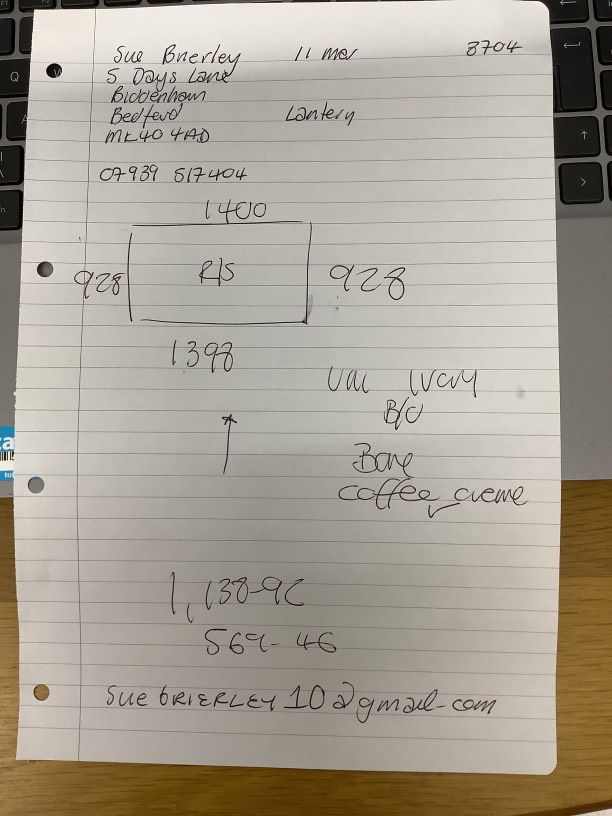 Sue Brierley 11 Mar 3704
5 Days Lane
Biddenham
Bedford Lantern
MK40 4AD
07939 517404
1400
928 R/S 928
1398
Ivory
B/O
Bone
coffee creme
1,138-92
569-46
SUE BRIERLEY10@gmail-com